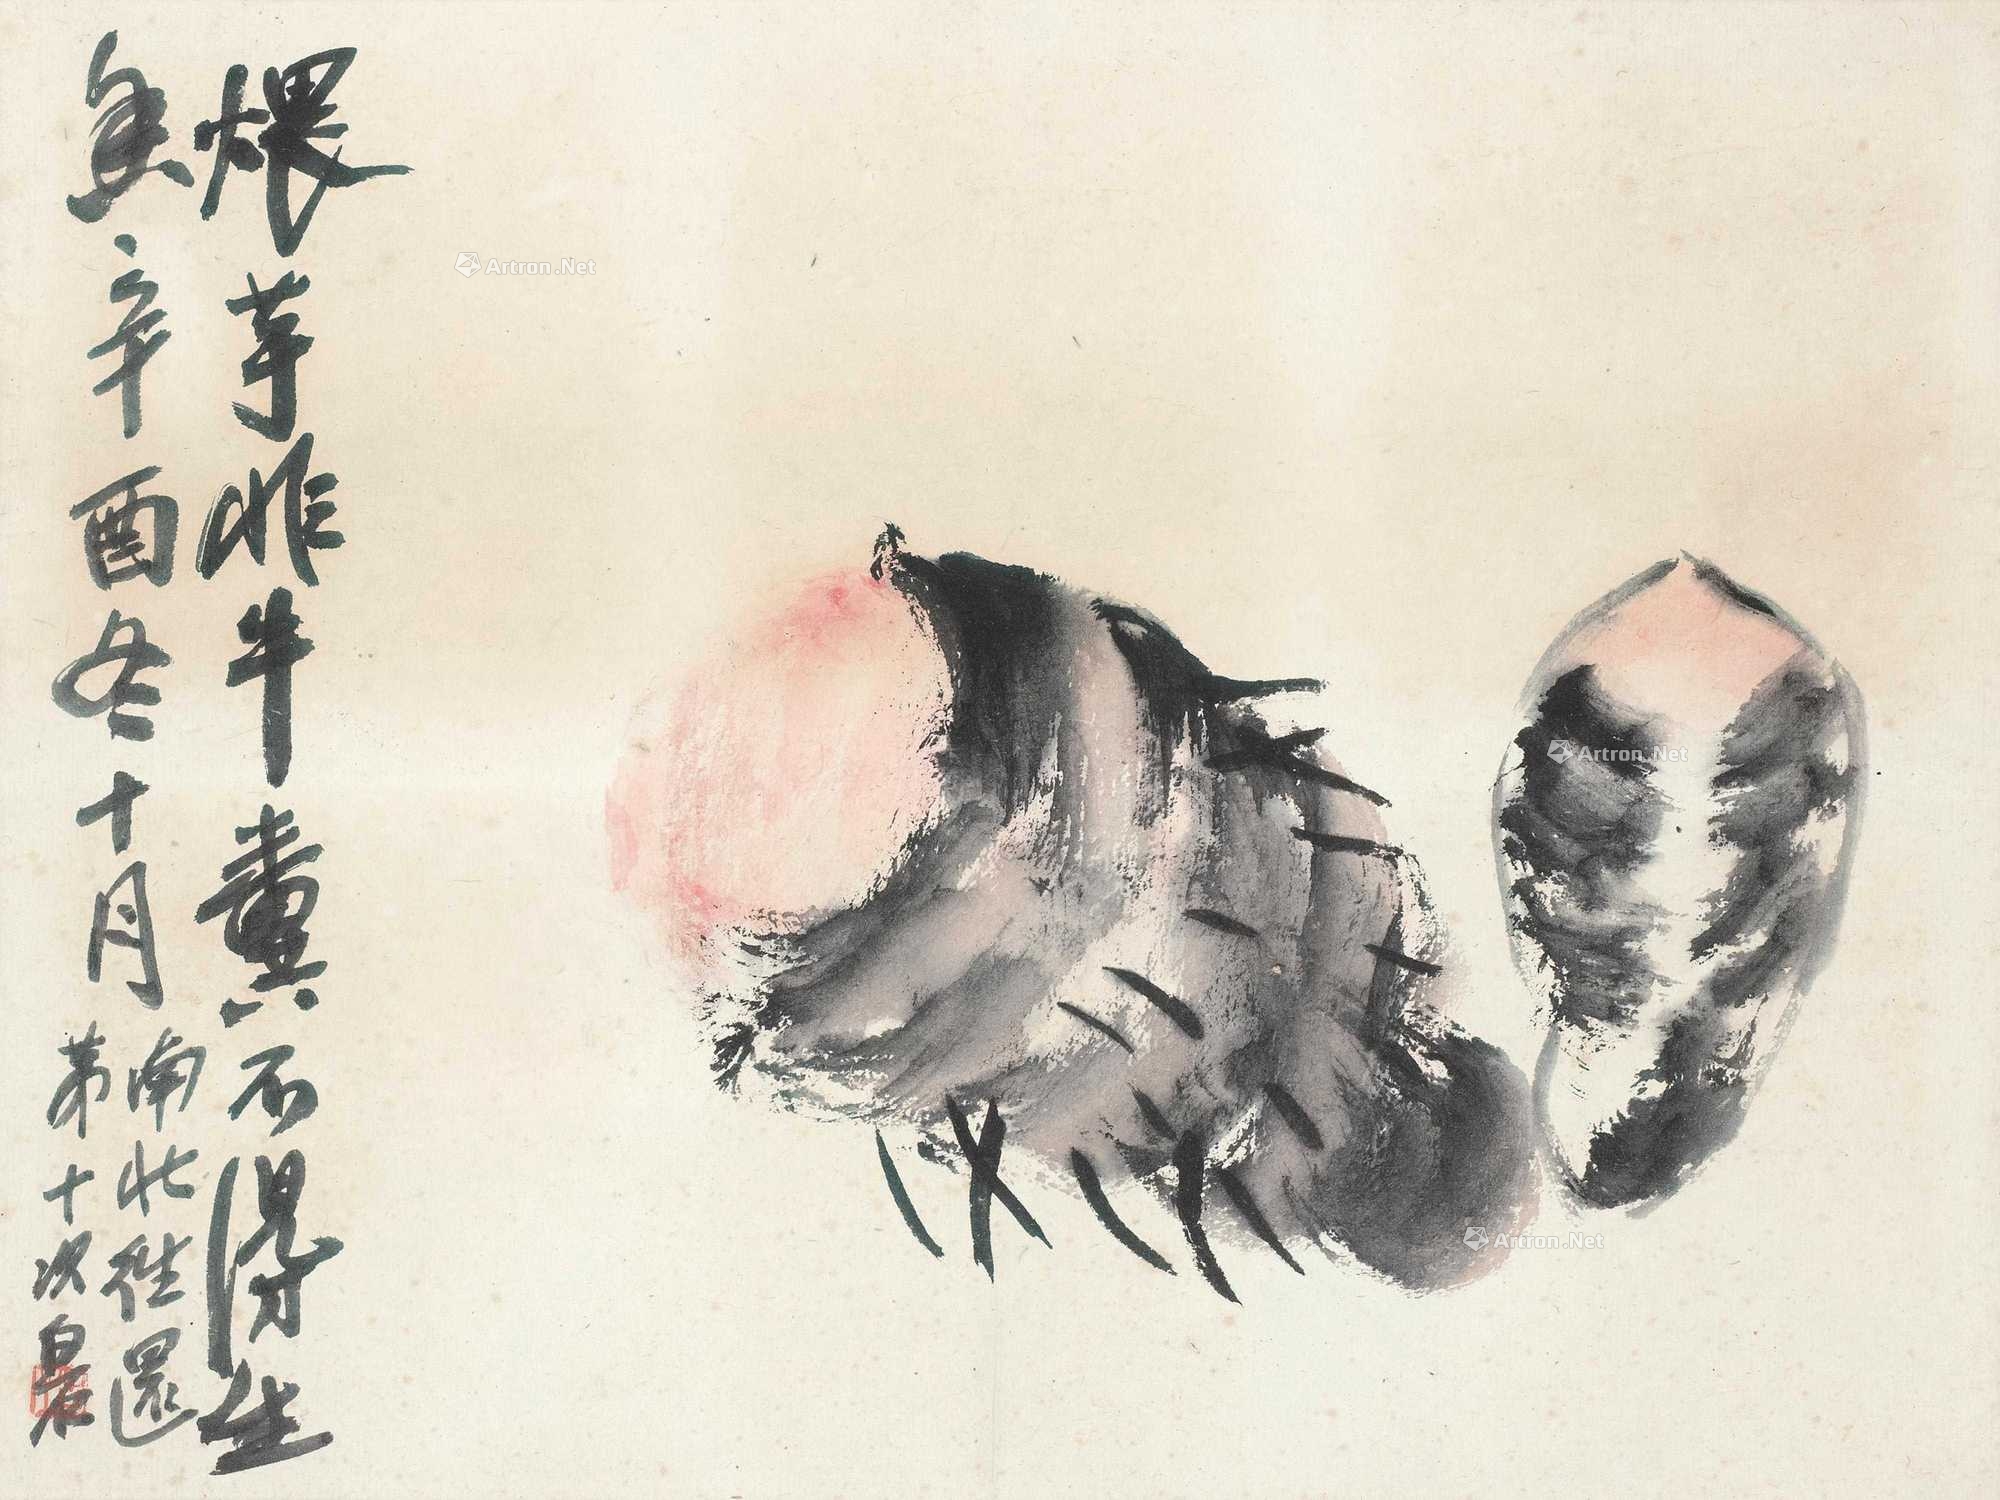 煨芋非牛糞不得生
香辛酉冬十月
南北往還
第十次白石
Artron.Net
Artron.Net
Artron.Net